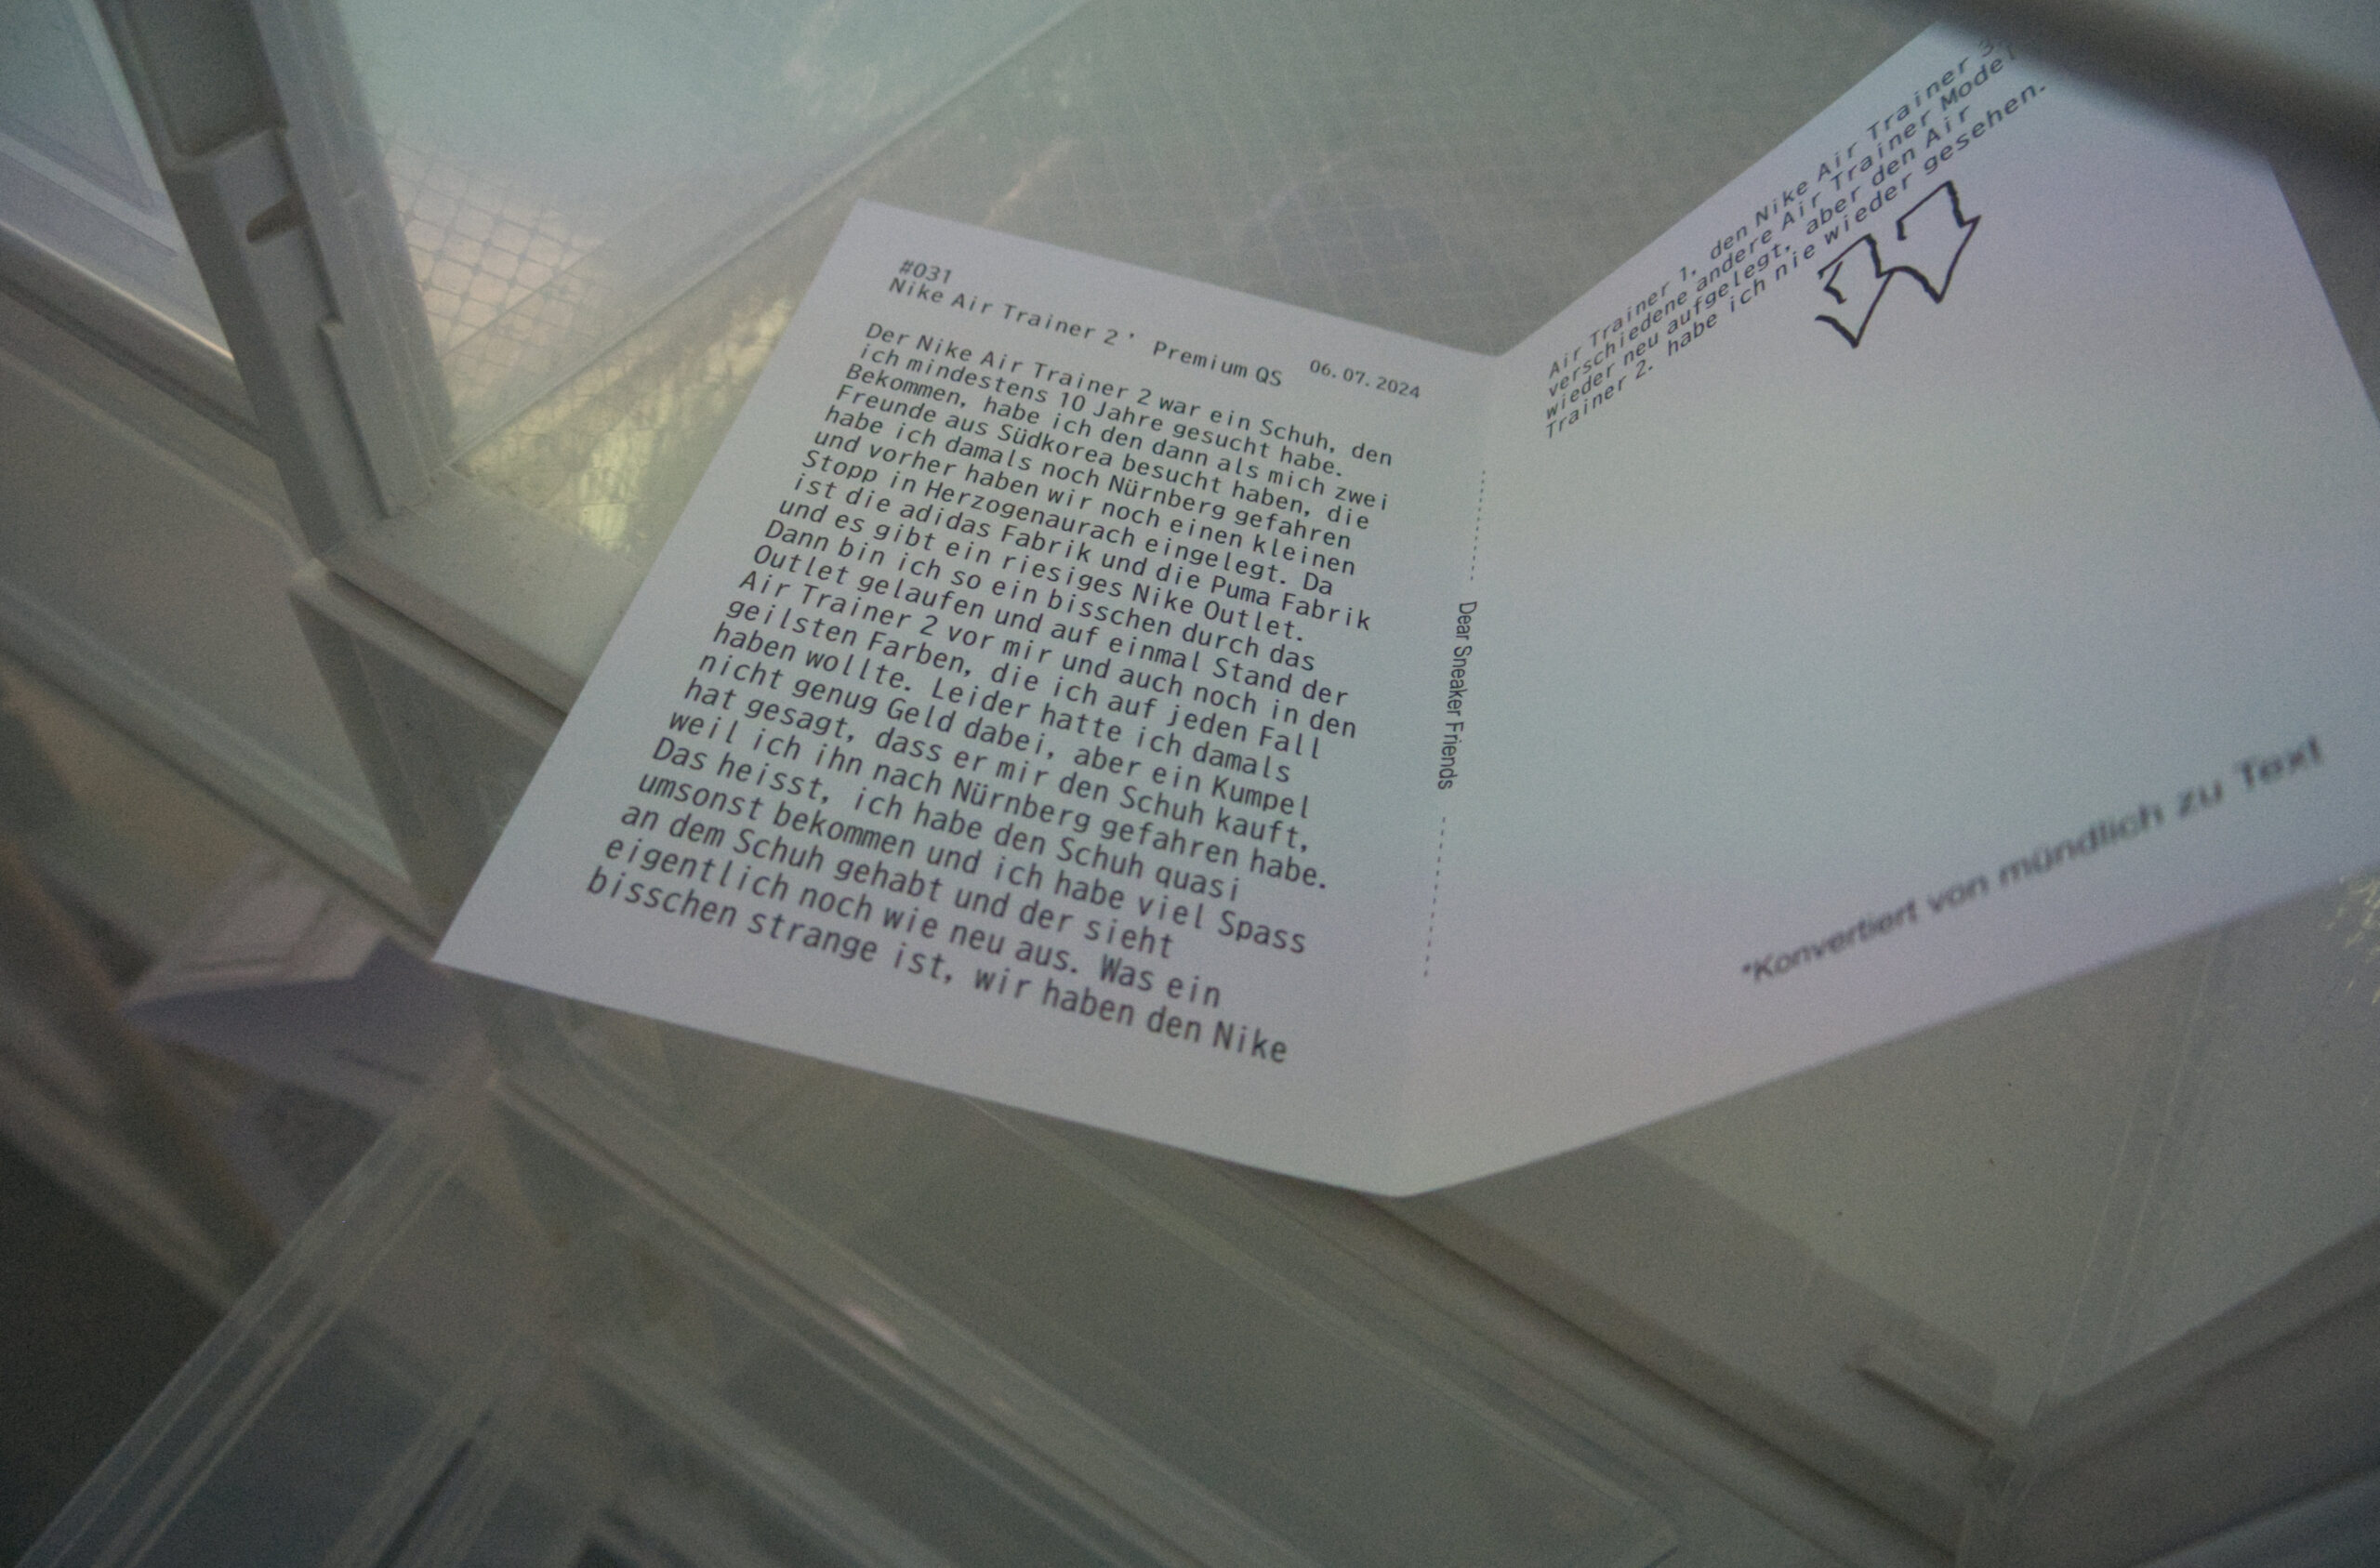 #031
Nike Air Trainer 2' Premium QS 06.07.2024
Der Nike Air Trainer 2 war ein Schuh, den
ich mindestens 10 Jahre gesucht habe.
Bekommen, habe ich den dann als mich zwei
Freunde aus Südkorea besucht haben, die
habe ich damals noch Nürnberg gefahren
und vorher haben wir noch einen kleinen
Stopp in Herzogenaurach eingelegt. Da
ist die adidas Fabrik und die Puma Fabrik
und es gibt ein riesiges Nike Outlet.
Dann bin ich so ein bisschen durch das
Outlet gelaufen und auf einmal Stand der
Air Trainer 2 vor mir und auch noch in den
geilsten Farben, die ich auf jeden Fall
haben wollte. Leider hatte ich damals
nicht genug Geld dabei, aber ein Kumpel
hat gesagt, dass er mir den Schuh kauft,
weil ich ihn nach Nürnberg gefahren habe.
Das heisst, ich habe den Schuh quasi
umsonst bekommen und ich habe viel Spass
an dem Schuh gehabt und der sieht
eigentlich noch wie neu aus. Was ein
bisschen strange ist, wir haben den Nike
Dear Sneaker Friends
Air Trainer 1, den Nike Air Trainer 3,
verschiedene andere Air Trainer Model
wieder neu aufgelegt, aber den Air
Trainer 2. habe ich nie wieder gesehen.
*Konvertiert von mündlich zu Text